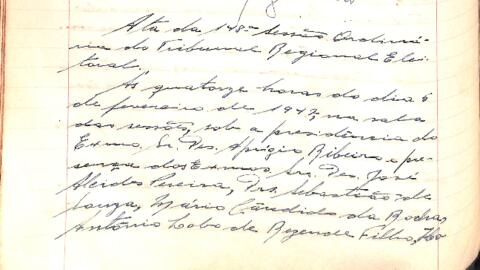 8
Ata da 148ª sessão Ordiná-
ria do Tribunal Regional Elei-
toral.
As quatorze horas do dia 6
de fevereiro de 1947, na sala
das sessões, sob a presidência do
Exmo. Sr. Des. Aprígio Ribeiro e pre-
sença dos Exmos. Srs. Des. José
Alcides Pereira, Drs. Sebastião de
Souza, Mário Cândido da Rocha,
Antônio Lobo de Rezende Filho,